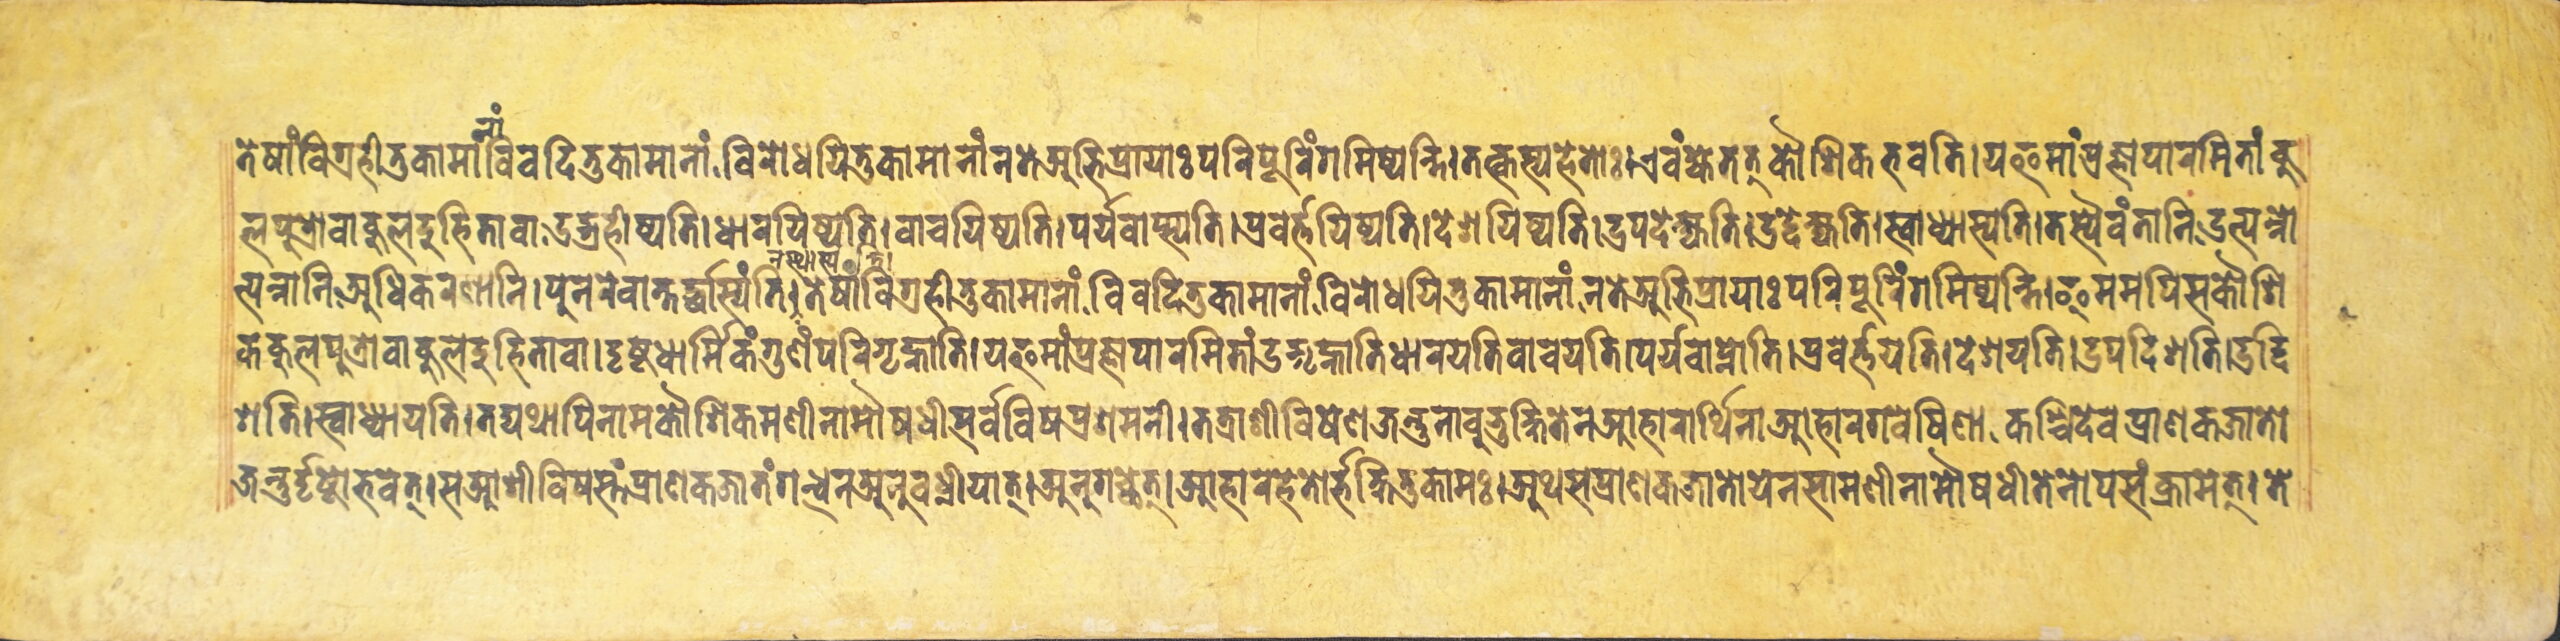 तेषां विग्रहीतुकामानां विवदितुकामानां विरोधयितुकामानां न ते अभिप्रायाः परिपूरिं गमिष्यन्ति। तत्कस्य हेतोः। एवं ह्येतत् कौशिक भवति। य इमां प्रज्ञापारमितां कु
लपुत्रो वा कुलदुहिता वा उद्ग्रहीष्यति। धारयिष्यति। वाचयिष्यति। पर्यवाप्स्यति। प्रवर्त्तयिष्यति। देशयिष्यति। उपदेक्ष्यति। उद्देक्ष्यति। स्वाध्यास्यति। तस्यैवं तानि उत्पन्नो
त्पन्नानि अधिकरणानि। पुनरेवान्तर्द्धास्यंति। न स्थास्यंति। तेषां विग्रहीतुकामानां विवदितुकामानां विरोधयितुकामानां न ते अभिप्रायाः परिपूरिं गमिष्यन्ति। इममपि स कौशि
क कुलपुत्रो वा कुलदुहिता वा। दृष्टधार्मिकं गुणं परिगृह्णाति। य इमां प्रज्ञापारमितां उद्गृह्णाति धारयति वाचयति। पर्यवाप्नोति। प्रवर्त्तयति। देशयति। उपदिशति। उद्दि
शति। स्वाध्यायति। तद्यथापि नाम कौशिक मघीनामौषधी सर्वविषप्रशमनी। तत्राशीविषेण जन्तुना बुभुक्षितेन आहारार्थिना आहारगवेषिणा कश्चिदेव प्राणकजातो
जन्तुर्दृष्टो भवेत्। स आशीविषस्तं प्राणकजातं गन्धेन अनुबध्नीयात्। अनुगच्छेत्। आहारहेतोर्भक्षितुकामः। अथ स प्राणकजातो येन सा मघीनामौषधी तेनोपसंक्रामेत्। ते